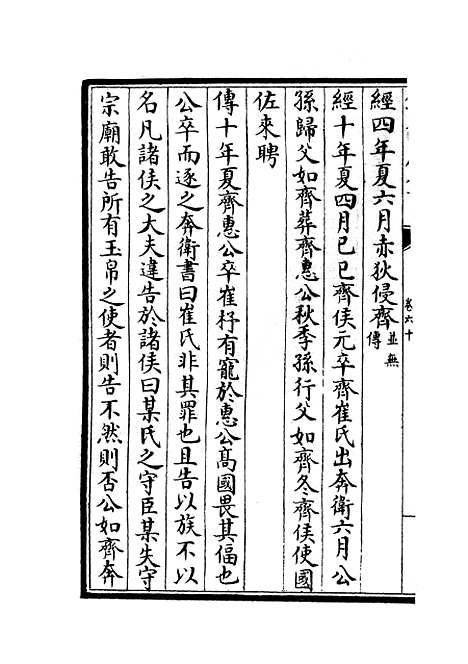 卷六十
經四年夏六月赤狄侵齊並無傳
經十年夏四月己巳齊侯元卒齊崔氏出奔衛六月公
孫歸父如齊葬齊惠公秋季孫行父如齊冬齊侯使國
佐來聘
傳十年夏齊惠公卒崔杼有寵於惠公高國畏其偪也
公卒而逐之奔衛書曰崔氏非其罪也且告以族不以
名凡諸侯之大夫違告於諸侯曰某氏之守臣某失守
宗廟敢告所有玉帛之使者則告不然則否公如齊奔